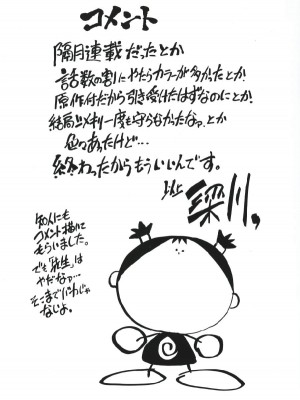 コメント
隔月連載だったとか
話数の割にやたらカラーが多かったとか
原作付だから引き受けたはずなのにとか
結局〆切一度も守らなかったなァ、とか
色々あったけど…
終わったからもういいんです。
以上
梁川
知人にも
コメント描いて
もらいました。
でも「先生」は
やだなァ…
そこまでババァじゃ
ないよ。